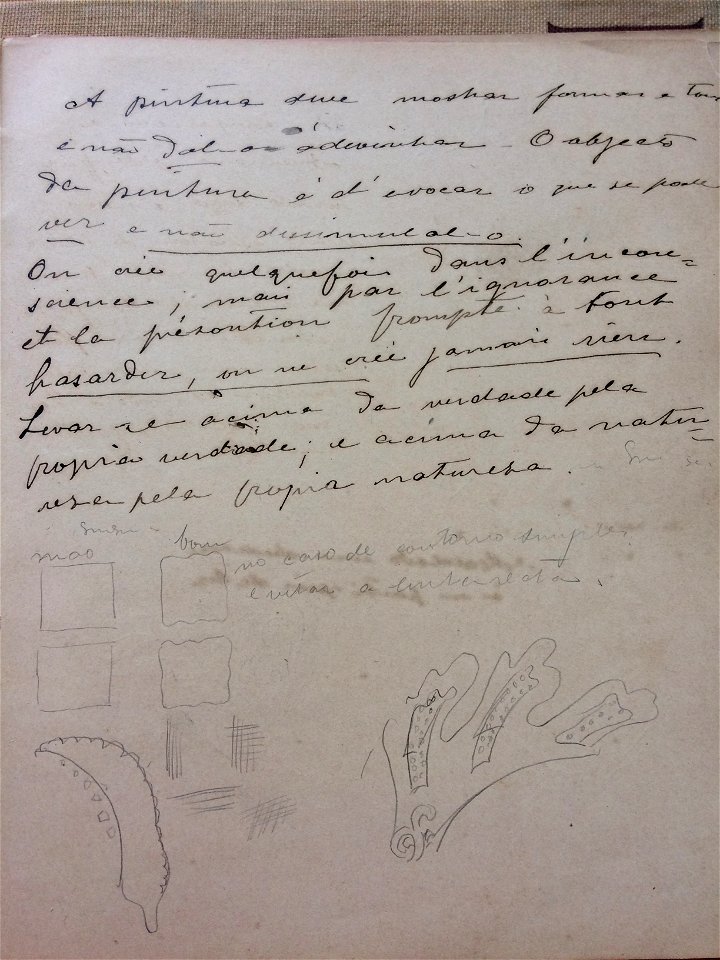 A pintura deve mostrar formas e
e não dal-a a adevinhar - O objecto
da pintura é d'evocar o que se pode
ver e não dissimulal-o.
On crée quelquefois dans l'incon-
science; mais par l'ignorance
et la présontion prompte à tout
hasarder, on ne crée jamais rien.
Levar-se acima da verdade pela
propria verdade; e acima da natu-
resa pela propria naturesa.
mao bom no caso de contorno simples
evitar a linha recta.